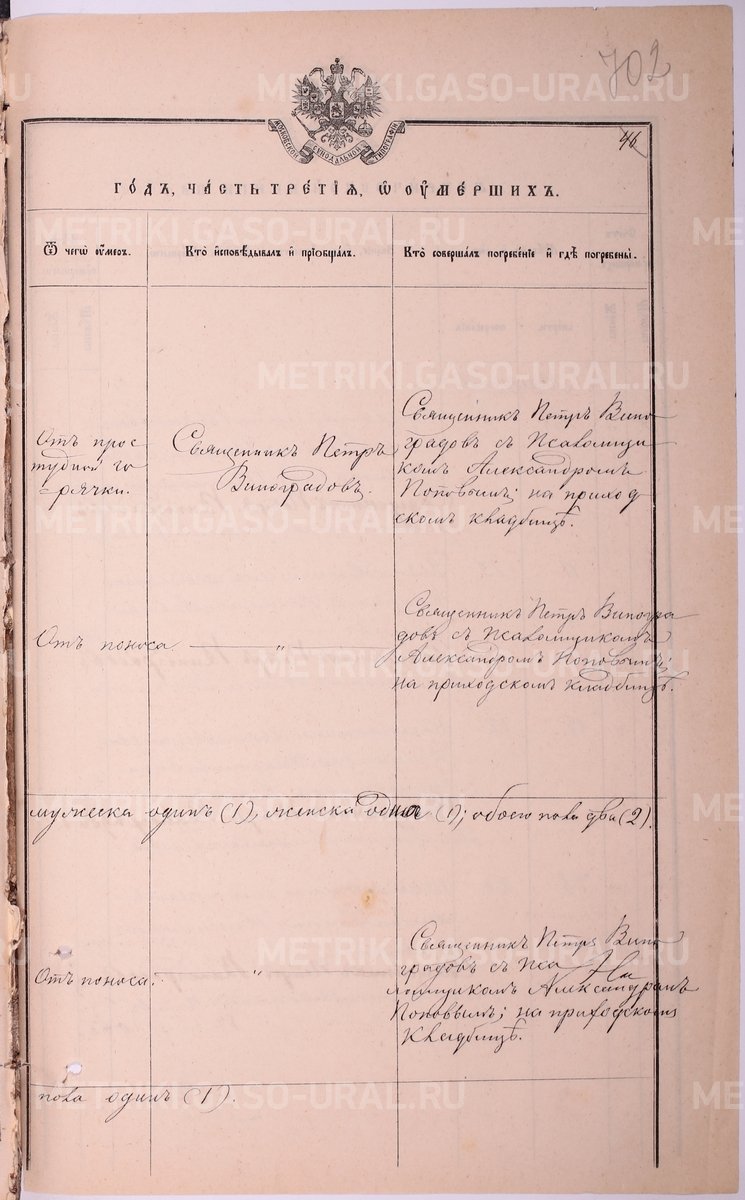 702
46
МОСКОВСКОЙ СѴНОДАЛЬНОЙ ТИПОГРАФІИ
ГО́ДЪ, ЧА́СТЬ ТРЕ́ТІѦ, Ѡ҆ ОУ҆МЕ́РШИХЪ.
Ѿ чегѡ̀ оу҆́меръ.
Кто̀ и҆сповѣ́дывалъ и҆ прїѻбща́лъ.
Кто̀ соверша́лъ погребе́нїе и҆ гдѣ̀ погребены̀.
Отъ прос
тудной го
рячки.
Священникъ Петръ
Виноградовъ.
Священникъ Петръ Вино
градовъ съ Псаломщи
комъ Александромъ
Поповымъ; на приход
скомъ кладбищѣ.
Отъ поноса.
"
Священникъ Петръ Виногра
довъ съ Псаломщикомъ
Александромъ Поповымъ;
на приходскомъ кладбищѣ.
мужеска одинъ (1), женска одна (1); обоего пола два (2).
Отъ поноса.
"
Священникъ Петръ Вино
градовъ съ Пса
ломщикомъ Александромъ
Поповымъ; на приходскомъ
кладбищѣ.
пола одинъ (1).
METRIKI.GASO-URAL.RU